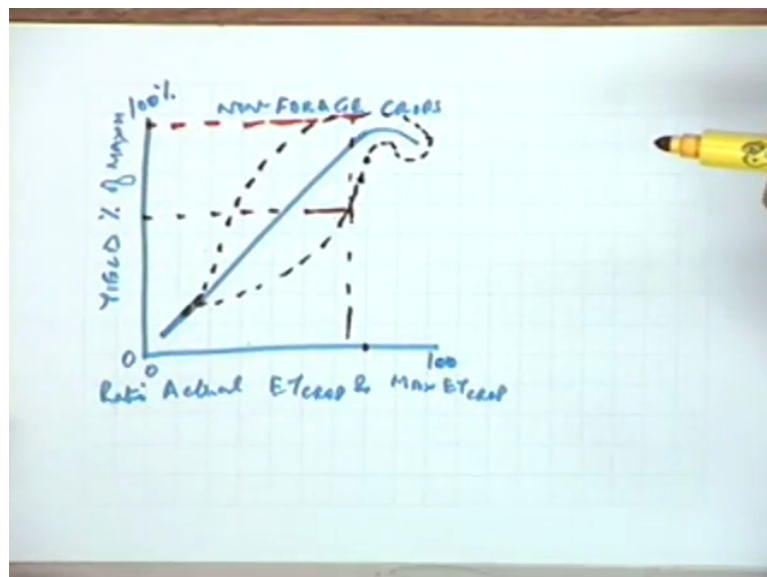 100%
NON-FORAGE CROPS
YIELD % of MAXM
0
0
100
Ratio Actual ETCROP to MAX ETCROP